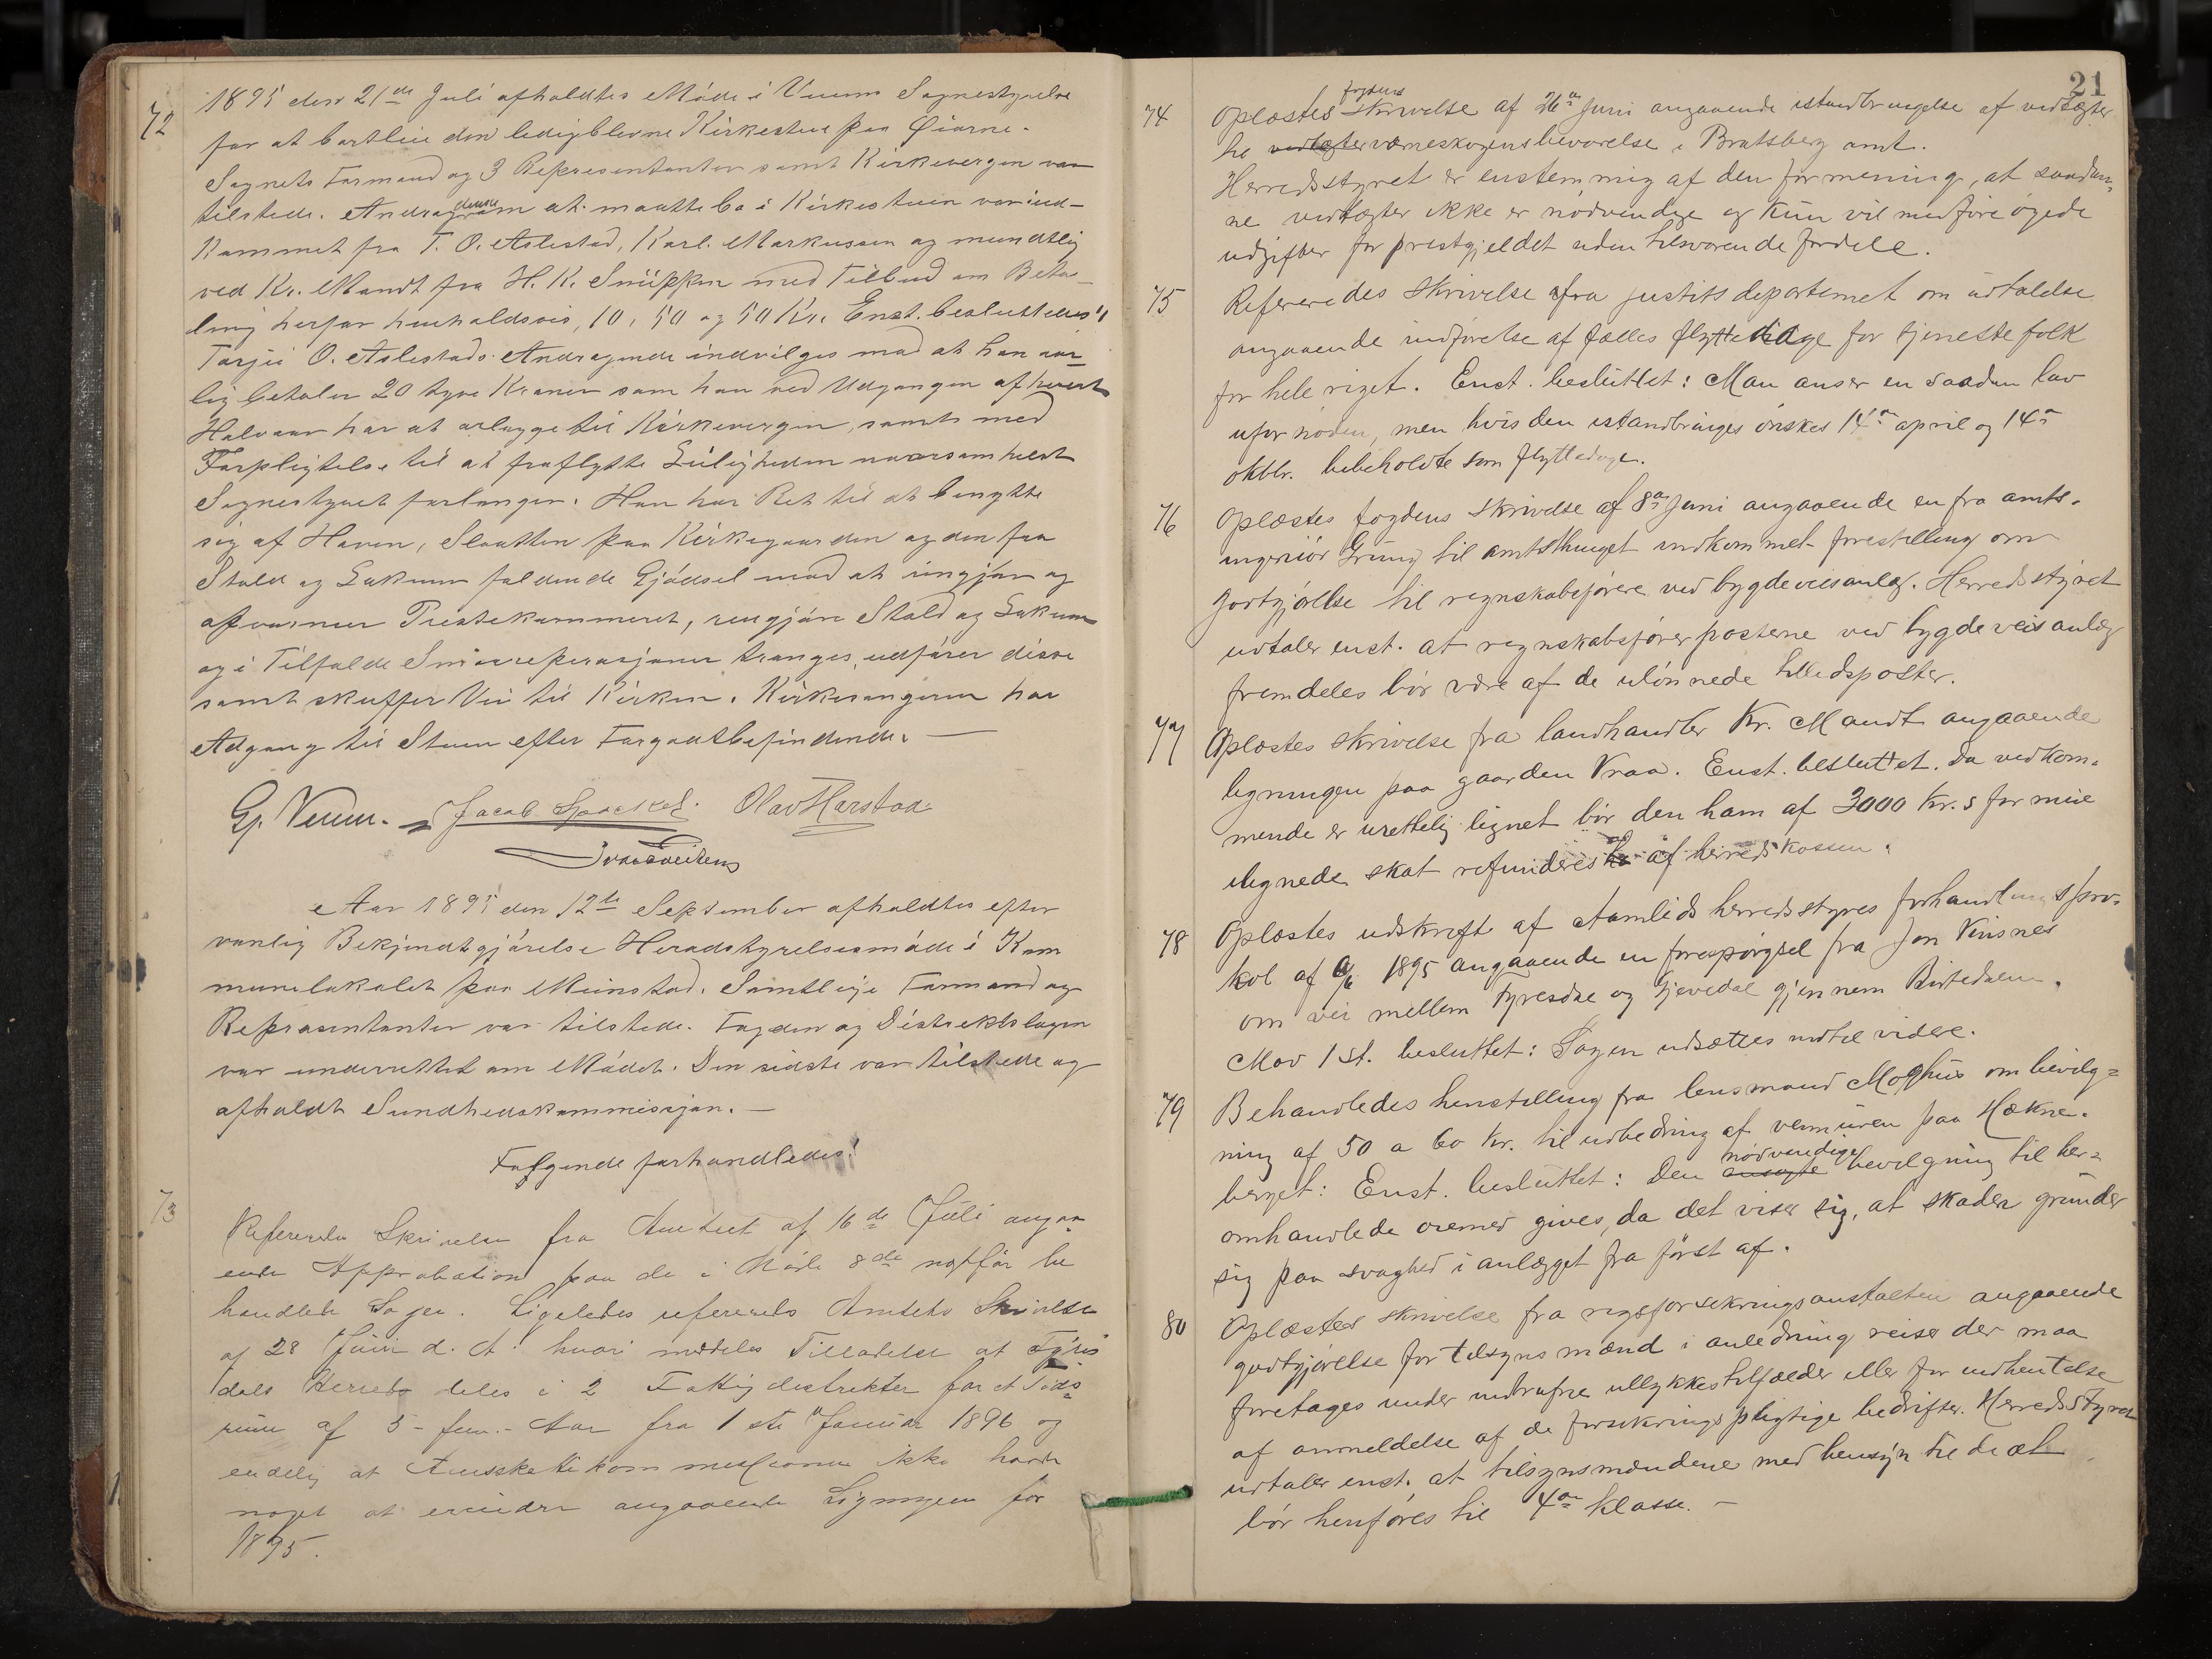 72
1895 den 21de Juli afholdtes Møde i Veum Sognestyrelse
for at bortleie den ledigblevne Kirkestue paa Øiarne.
Sognets Formand og 3 Representanter samt Kirkevergen var
tilstede. Andragende om at maatte bo i Kirkestuen var ind-
kommet fra T. O. Aslestad, Karl Markussen og mundtlig
ved Kr. Mandt fra H. K. med Tilbud om Beta-
ling herfor henholdsvis, 10, 50 og 50 Kr. Enst. besluttedes:
Tarjei O. Aslestads Andragende indvilges mod at han aar-
lig betaler 20 tyve Kroner som han ved Udgangen af hvert
Halvaar har at erlægge til Kirkevergen, samt med
Forpligtelse til at fraflytte Leiligheden naarsomhelst
Sognestyret forlanger. Han har Ret til at benytte
sig af Haven, Slaatten paa Kirkegaarden og den fra
Stald og Lokum faldende Gjødsel mod at rengjøre og
opvarmer Prestekammeret, rengjøre Stald og Lokum
og i Tilfælde Smaareparasjoner trænges, udfører disse
samt skuffer Vei til Kirken. Kirkesangeren har
Adgang til Stuen efter Forgodtbefindende. —
G. Veum. Jacob Olav Harstad.
Aar 1895 den 12te September afholdtes efter
vanlig Bekjendtgjørelse Heradstyrelsesmøde i Kom
munelokalet paa Meinstad. Samtlige Formænd og
Repræsentanter var tilstede. Fogden og Distriktslægen
var underrettet om Mødet. Den sidste var tilstede og
afholdt Sundhedskommissjon. —
Følgende forhandledes:
73
Refereredes Skrivelse fra Amtet af 16de Juli angaa
ende Approbation paa de i Møde 8de næstfør be
handlede Sager. Ligeledes refereredes Amtets Skrivelse
af 28 Juni d. A. hvori meddeles Tilladelse at Tyris
dals Herred deles i 2 Fattigdistrikter for et Tids
rum af 5 - fem - Aar fra 1ste Januar 1896 og
endelig at Amtsskattekommissionen ikke havde
noget at erindre angaaende Ligningen for
1895.
21
74 Oplæstes fogdens skrivelse af 26de Juni angaaende istandbringelse af vedtægter
til vedtægter værneskogens bevarelse i Bratsberg amt.
Herredsstyret er enstemmig af den formening, at saadan-
ne vedtægter ikke er nødvendige og kun vil medføre øgede
udgifter for prestgjeldet uden tilsvarende fordele.
75 Refereredes skrivelse fra justitsdepartemet om udtalelse
angaaende indførelse af fælles flyttedage for tjenestefolk
for hele riget. Enst. besluttet: Man anser en saadan lov
ufornøden, men hvis den istandbringes ønskes 14de april og 14de
oktbr. bibeholdte som flyttedage.
76 Oplæstes fogdens skrivelse af 8de Juni angaaende en fra amts-
ingeniør Grüng til amtsthinget indkommet forestilling om
godtgjørelse til regnskabsførere ved bygdeveisanlæg. Herredsstyret
udtaler enst. at regnskabsførerposterne ved bygdeveisanlæg
fremdeles bør være af de ulønnede tillidsposter.
77 Oplæstes skrivelse fra landhandler Kr. Mandt angaaende
ligningen paa gaarden Vraa. Enst. besluttet. Da vedkom-
mende er urettelig lignet bør den ham af 3000 Kr.s formue
ilignede skat refunderes af herredskassen.
78 Oplæstes udskrift af Aamlids herredsstyres forhandlingspro-
kol af 1895 angaaende en forespørgsel fra Jon
om vei mellem Tyresdal og Gjevedal gjennem
Mod 1 st. besluttet: Sagen udsættes indtil videre.
79 Behandledes henstilling fra lensmand Moghus om bevilg-
ning af 50 a 60 Kr. til udbedring af veimuren paa Hækne-
berget: Enst. besluttet: Den ansøgte nødvendige bevilgning til her-
omhandlede øiemed gives, da det viser sig, at skaden grunder
sig paa svaghed i anlægget fra først af.
80 Oplæstes skrivelse fra rigsforsikringsanstalten angaaende
godtgjørelse for tilsynsmænd i anledning reiser der maa
foretages under indtrufne ullykkestilfælder eller for indhentelse
af anmeldelse af de forsikringspligtige bedrifter. Herredsstyret
udtaler enst. at tilsynsmændene med hensyn til diæt
bør henføres til 4de klasse. —